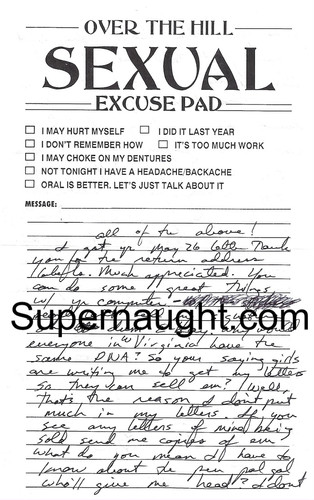 OVER THE HILL
SEXUAL
EXCUSE PAD
I MAY HURT MYSELF I DID IT LAST YEAR
I DON'T REMEMBER HOW IT'S TOO MUCH WORK
I MAY CHOKE ON MY DENTURES
NOT TONIGHT I HAVE A HEADACHE/BACKACHE
ORAL IS BETTER. LET'S JUST TALK ABOUT IT
MESSAGE:
all of the above!
I got yr May 26 letter. Thank
you for the return address
labels. Much appreciated. You
can do some great things
w/ yr computer.
Supernaught.com
everyone in W Virginia have the
same DNA? So your saying girls
are writing me to get my letters
So they can sell em? Well,
That's the reason I don't put
much in my letters. If you
see any letters of mine being
sold send me copies of em.
What do you mean I have to
know about the pen pal gal
who'll give me head? I dont